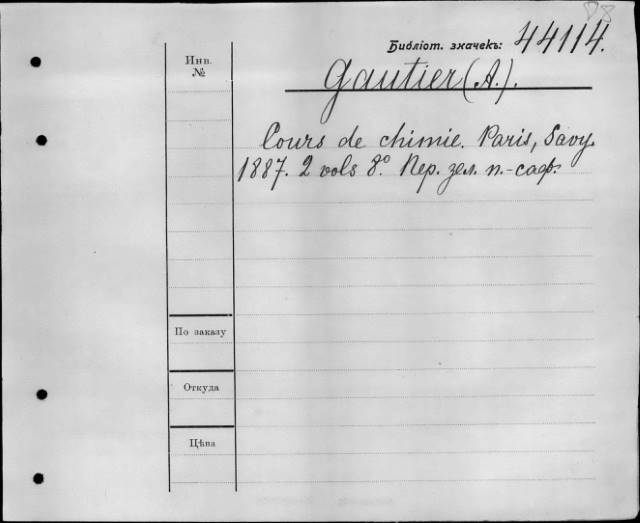 Библіот. значекъ: 44114.
Инв.
№
Gautier (A.).
Cours de chimie. Paris, Savy.
1887. 2 vols 8º. Пер. зел. п.-саф.
По заказу
Откуда
Цѣна